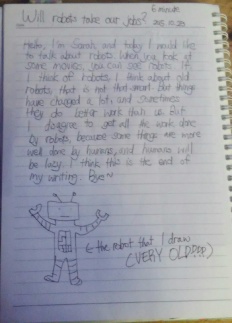 Will robots take our jobs?
6 minute
Hello, I'm Sarah and today I would like
to talk about robots. When you look at
some movies, you can see robots. If
I think of robots, I think about old
robots that is not that smart. But things
have changed a lot, and sometimes
they do better work than us. But
I disagree to get all the work done
by robots, because some things are more
well done by humans, and humans will
be lazy. I think this is the end of
my writing. Bye~
← the robot that I draw
(VERY OLD????)